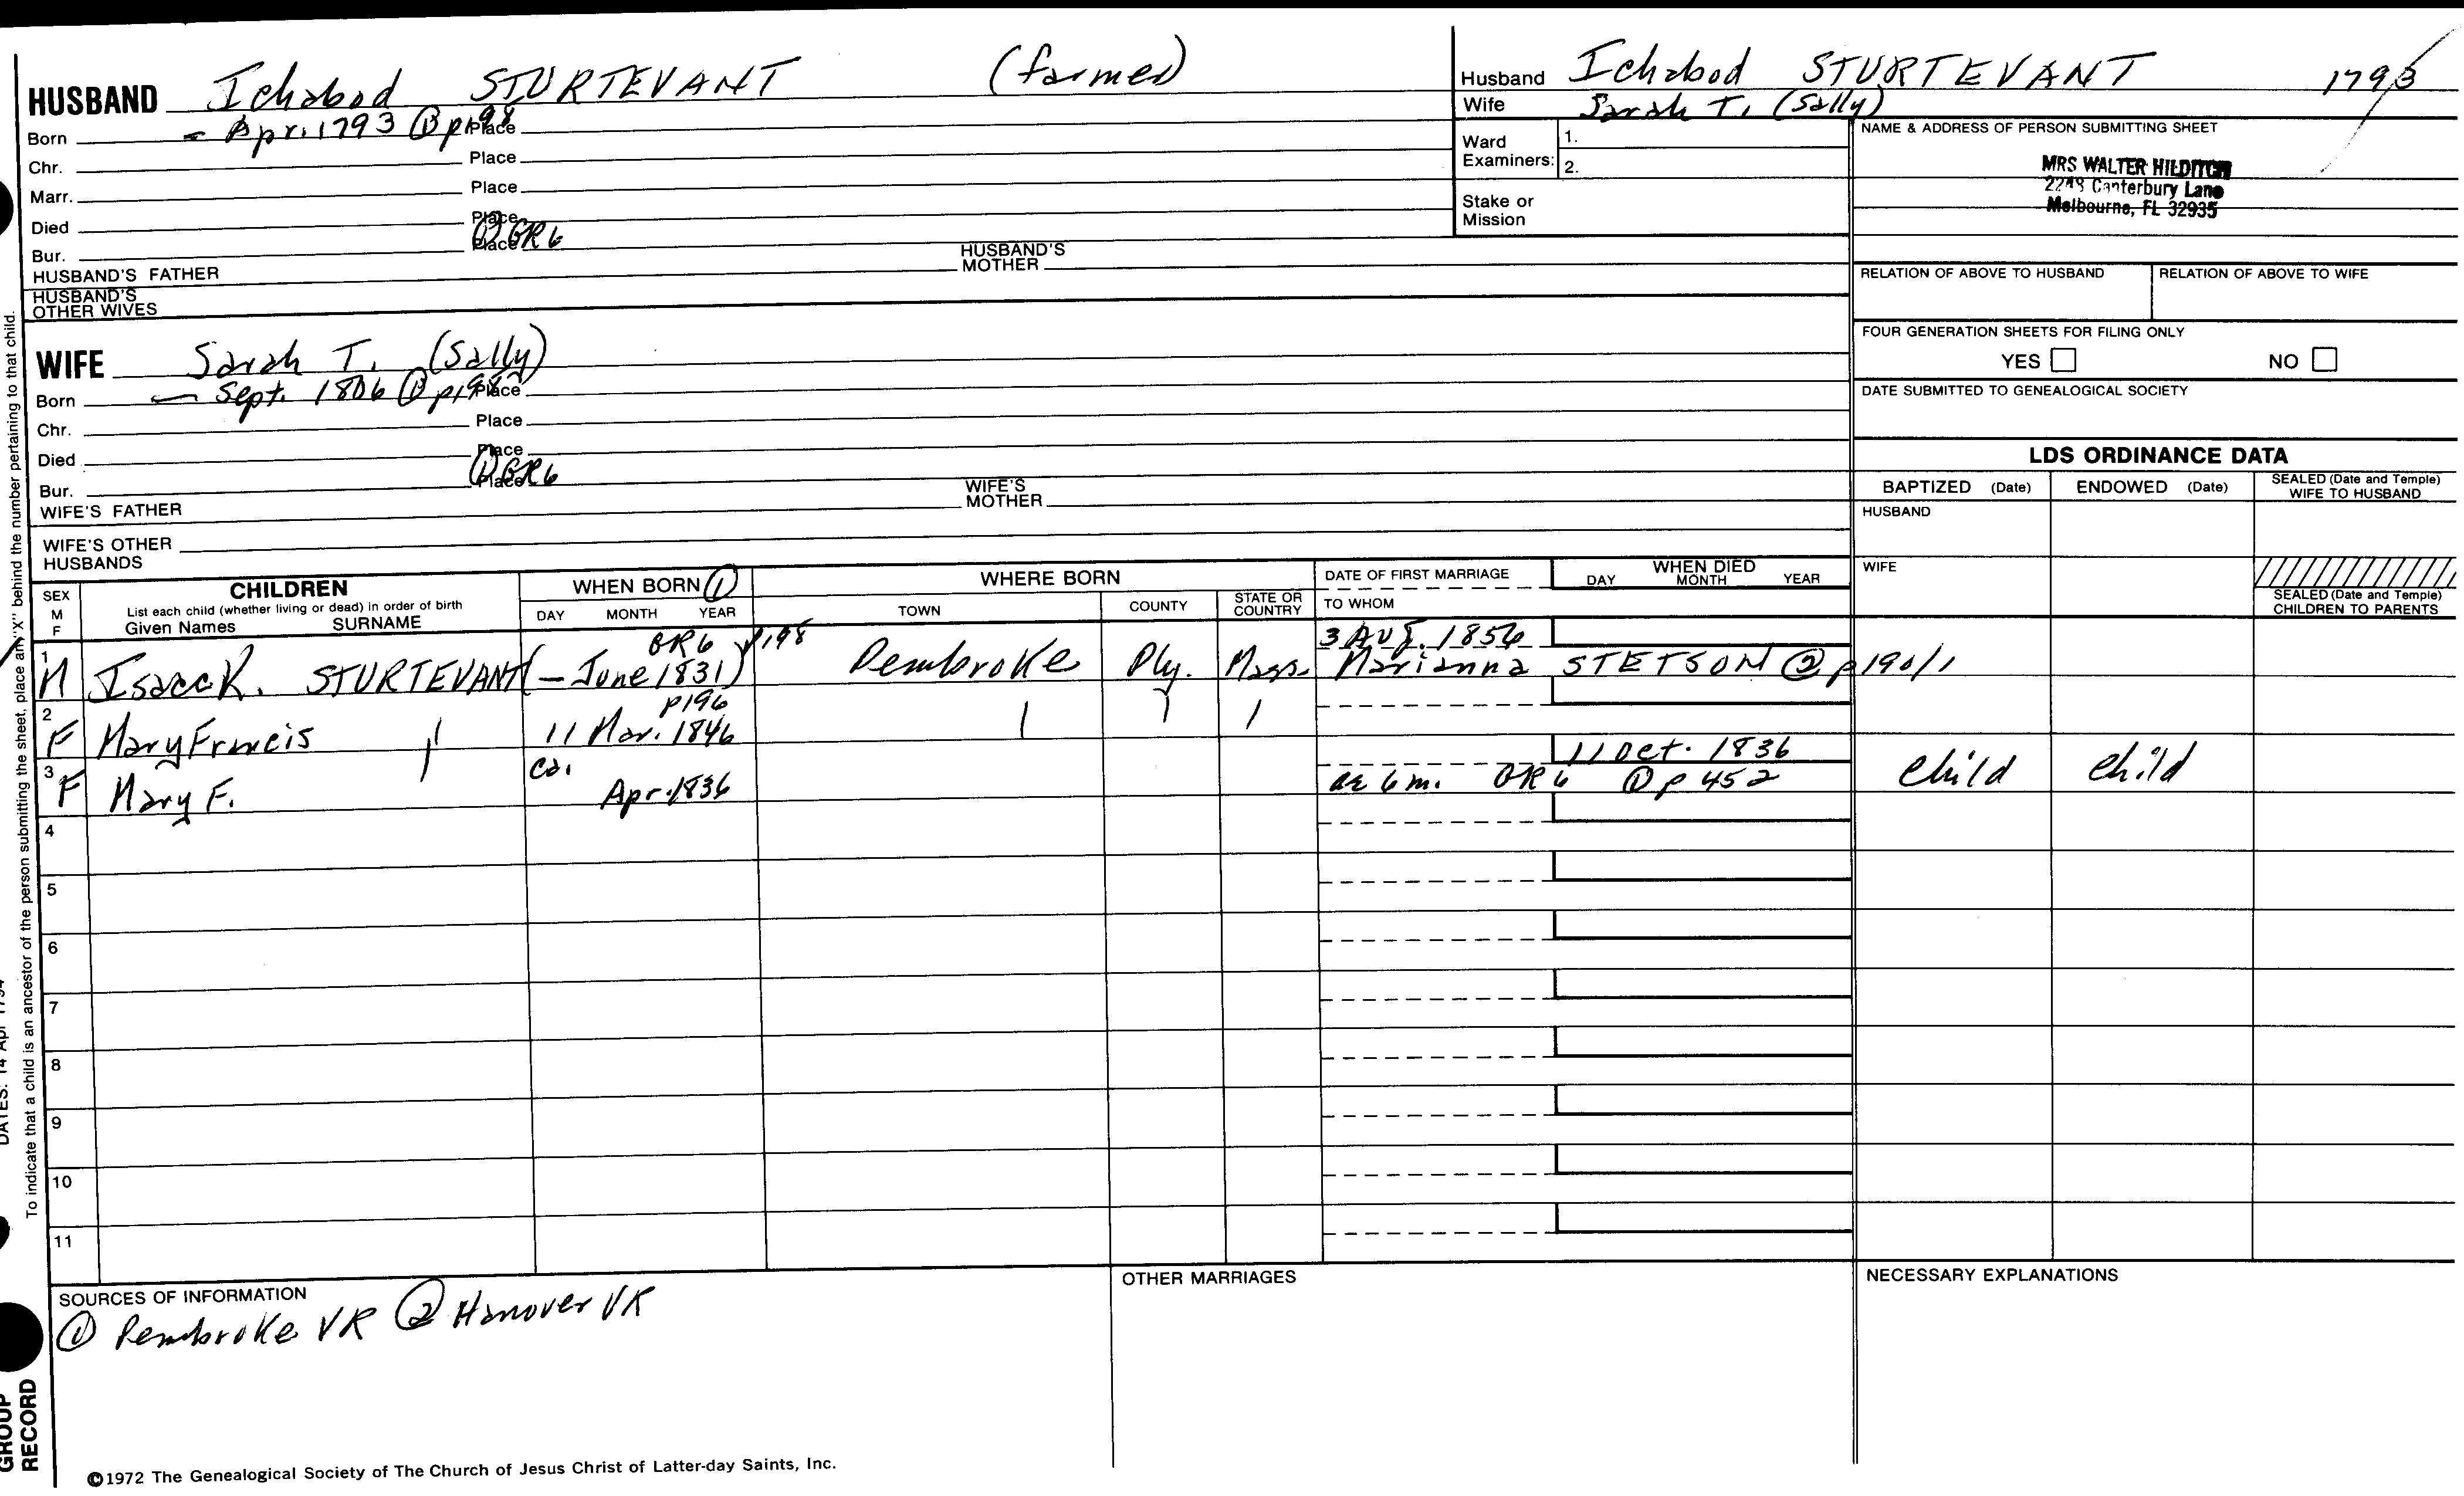 HUSBAND Ichabod STURTEVANT (farmer)
Born - Apr. 1793 ① p198 Place
Chr. Place
Marr. Place
Died Place
Bur. Place ① GR6
HUSBAND'S FATHER HUSBAND'S MOTHER
HUSBAND'S OTHER WIVES
Husband Ichabod STURTEVANT 1793
Wife Sarah T. (Sally)
Ward Examiners: 1.
2.
Stake or Mission
NAME & ADDRESS OF PERSON SUBMITTING SHEET
MRS WALTER HILDITCH
2248 Canterbury Lane
Melbourne, FL 32935
RELATION OF ABOVE TO HUSBAND RELATION OF ABOVE TO WIFE
FOUR GENERATION SHEETS FOR FILING ONLY
YES NO
DATE SUBMITTED TO GENEALOGICAL SOCIETY
WIFE Sarah T. (Sally)
Born - Sept. 1806 ① p198 Place
Chr. Place
Died Place
Bur. Place ① GR6
WIFE'S FATHER WIFE'S MOTHER
WIFE'S OTHER HUSBANDS
LDS ORDINANCE DATA
BAPTIZED (Date) ENDOWED (Date) SEALED (Date and Temple) WIFE TO HUSBAND
HUSBAND
WIFE
SEALED (Date and Temple) CHILDREN TO PARENTS
SEX M F
CHILDREN
List each child (whether living or dead) in order of birth
Given Names SURNAME
WHEN BORN ①
DAY MONTH YEAR
WHERE BORN
TOWN COUNTY STATE OR COUNTRY
DATE OF FIRST MARRIAGE
TO WHOM
WHEN DIED
DAY MONTH YEAR
GR6 p198 3 Aug. 1856
1 M Isacc R. STURTEVANT (- June 1831) Pembroke Ply. Mass. Marianna STETSON ② p190/1
p196
2 F Mary Francis 11 Mar. 1846
ca. 11 Oct. 1836
3 F Mary F. Apr. 1836 ae 6 m. GR 6 ① p 452 child child
4
5
6
7
8
9
10
11
SOURCES OF INFORMATION
① Pembroke VR ② Hanover VR
OTHER MARRIAGES
NECESSARY EXPLANATIONS
©1972 The Genealogical Society of The Church of Jesus Christ of Latter-day Saints, Inc.
To indicate that a child is an ancestor of the person submitting the sheet, place an "X" behind the number pertaining to that child.
GROUP
RECORD